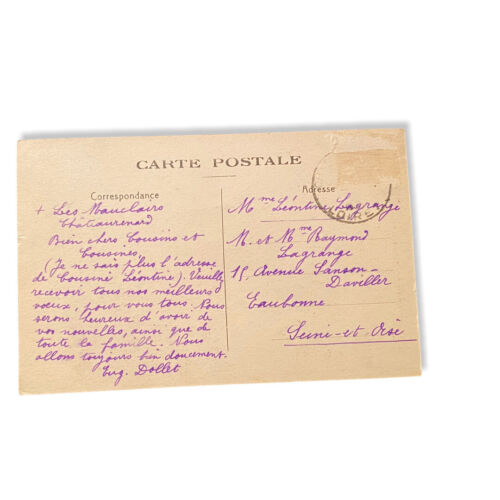 CARTE POSTALE
Correspondance
+ Les Mauclairs
Châteaurenard
Bien chers Cousins et
Cousines,
(Je ne sais plus l'adresse
de Cousine Léontine). Veuillez
recevoir tous nos meilleurs
vœux, pour vous tous. Nous
serons heureux d'avoir de
vos nouvelles, ainsi que de
toute la famille. Nous
allons toujours bin doucement.
Eug. Dollet
Adresse
Mme Léontine Lagrange
M. et Mme Raymond
Lagrange
15, Avenue Sanson-
Daviller
Eaubonne.
Seine-et Oise
LOIRET